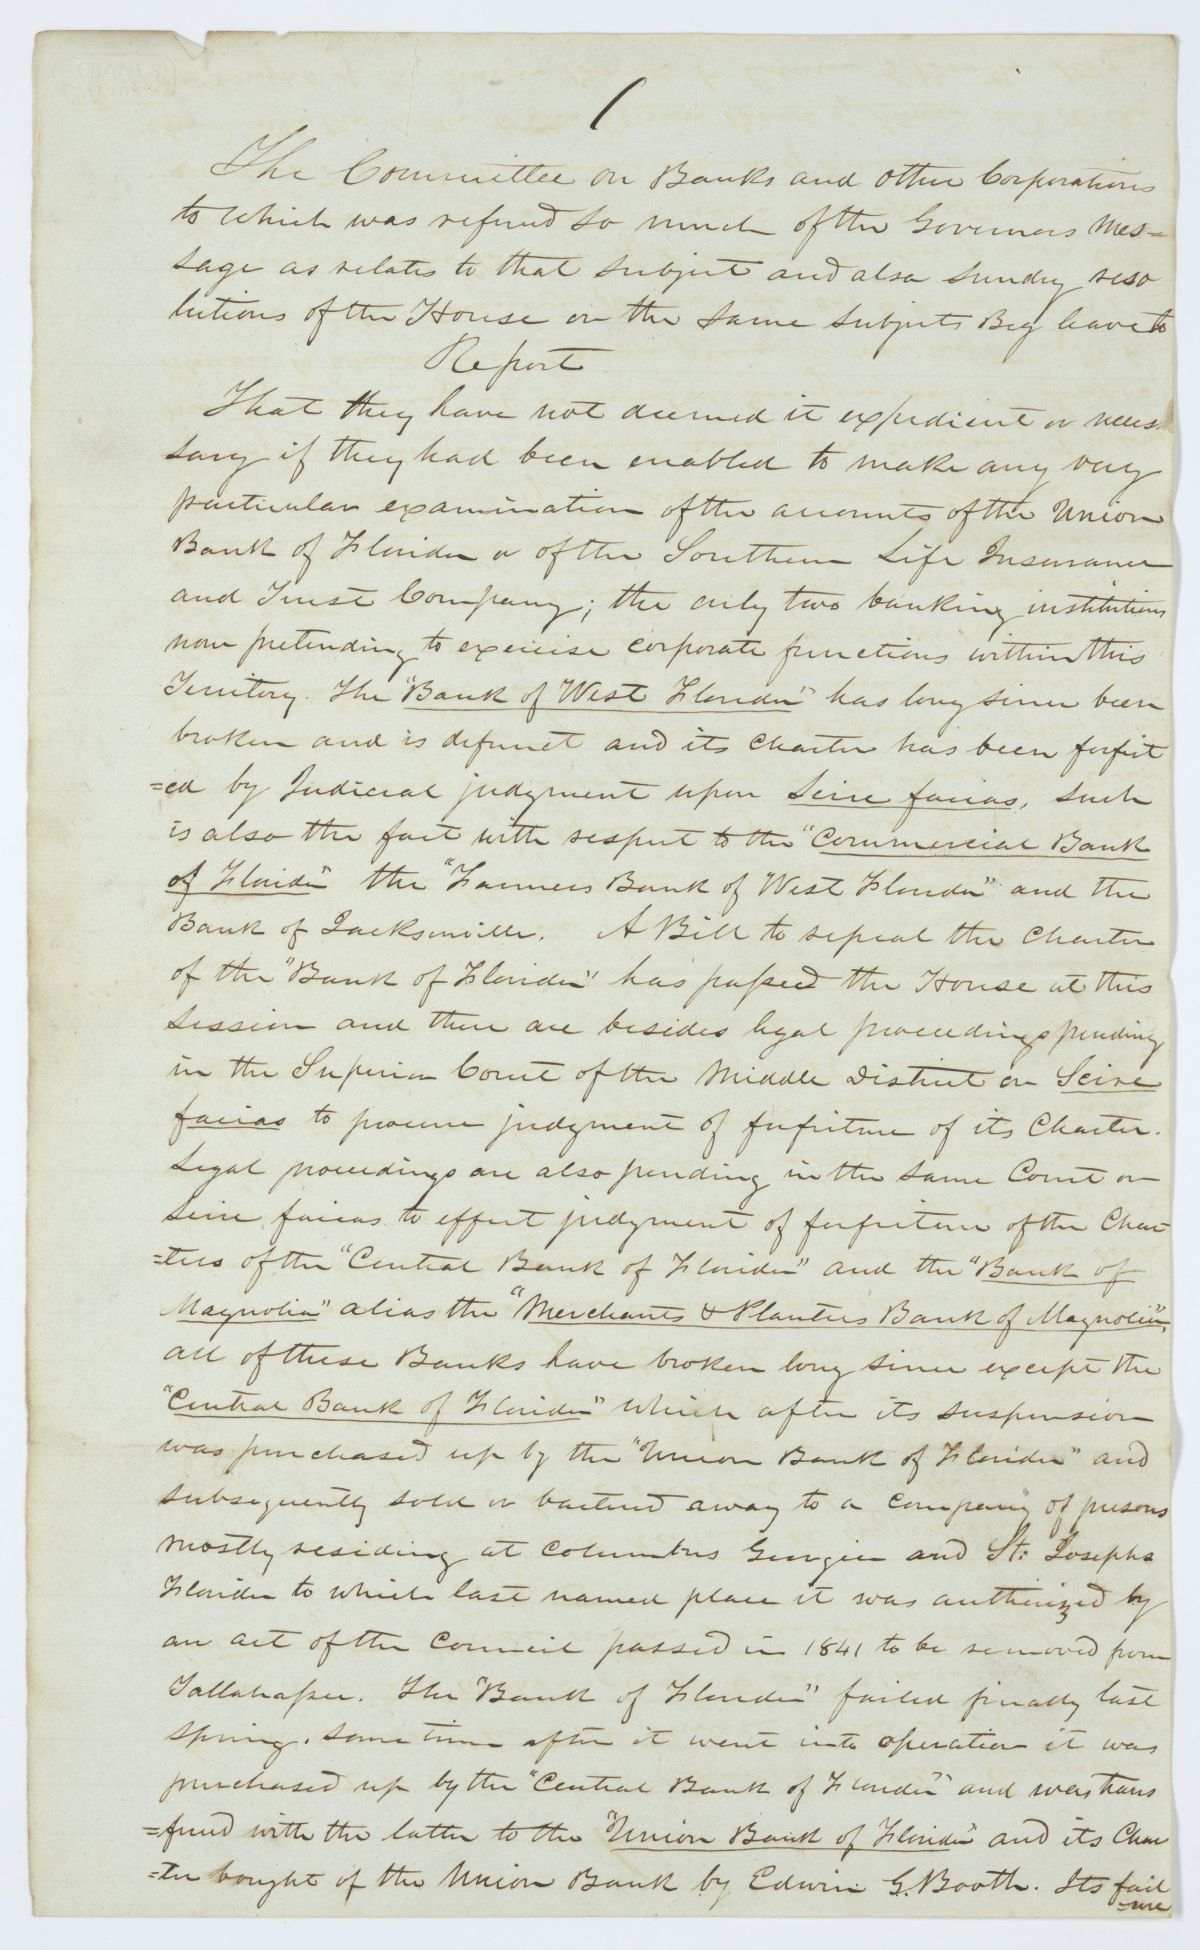 1
The Committee on Banks and other Corporations
to which was referred so much of the Governors Mes-
sage as relates to that subject and also sundry reso
lutions of the House on the same subjects Beg leave to
Report
That they have not deemed it expedient or neces
sary if they had been enabled to make any very
particular examination of the accounts of the Union
Bank of Florida or of the Southern Life Insurance
and Trust Company; the only two banking institutions
now pretending to exercise corporate functions within this
Territory. The "Bank of West Florida" has long since been
broken and is defunct and its charter has been forfeit
=ed by Judicial judgment upon Scire facias, such
is also the fact with respect to the "Commercial Bank
of Florida" the "Farmers Bank of West Florida" and the
Bank of Jacksonville. A Bill to repeal the Charter
of the "Bank of Florida" has passed the House at this
session and there are besides legal proceedings pending
in the Superior Court of the Middle District on Scire
facias to procure judgment of forfeiture of its Charter.
Legal proceedings are also pending in the same Court on
Scire facias to effect judgment of forfeiture of the Char-
=ters of the "Central Bank of Florida" and the "Bank of
Magnolia" alias the "Merchants & Planters Bank of Magnolia",
all of these Banks have broken long since except the
"Central Bank of Florida" which after its suspension
was purchased up by the "Union Bank of Florida" and
subsequently sold or bartered away to a company of persons
mostly residing at Columbus Georgia and St: Josephs
Florida to which last named place it was authorized by
an act of the Council passed in 1841 to be removed from
Tallahassee. The "Bank of Florida" failed finally last
spring. some time after it went into operation it was
purchased up by the "Central Bank of Florida" and was trans
=fered with the latter to the "Union Bank of Florida" and its Char
=ter bought of the Union Bank by Edwin G. Booth. Its fail
=ure